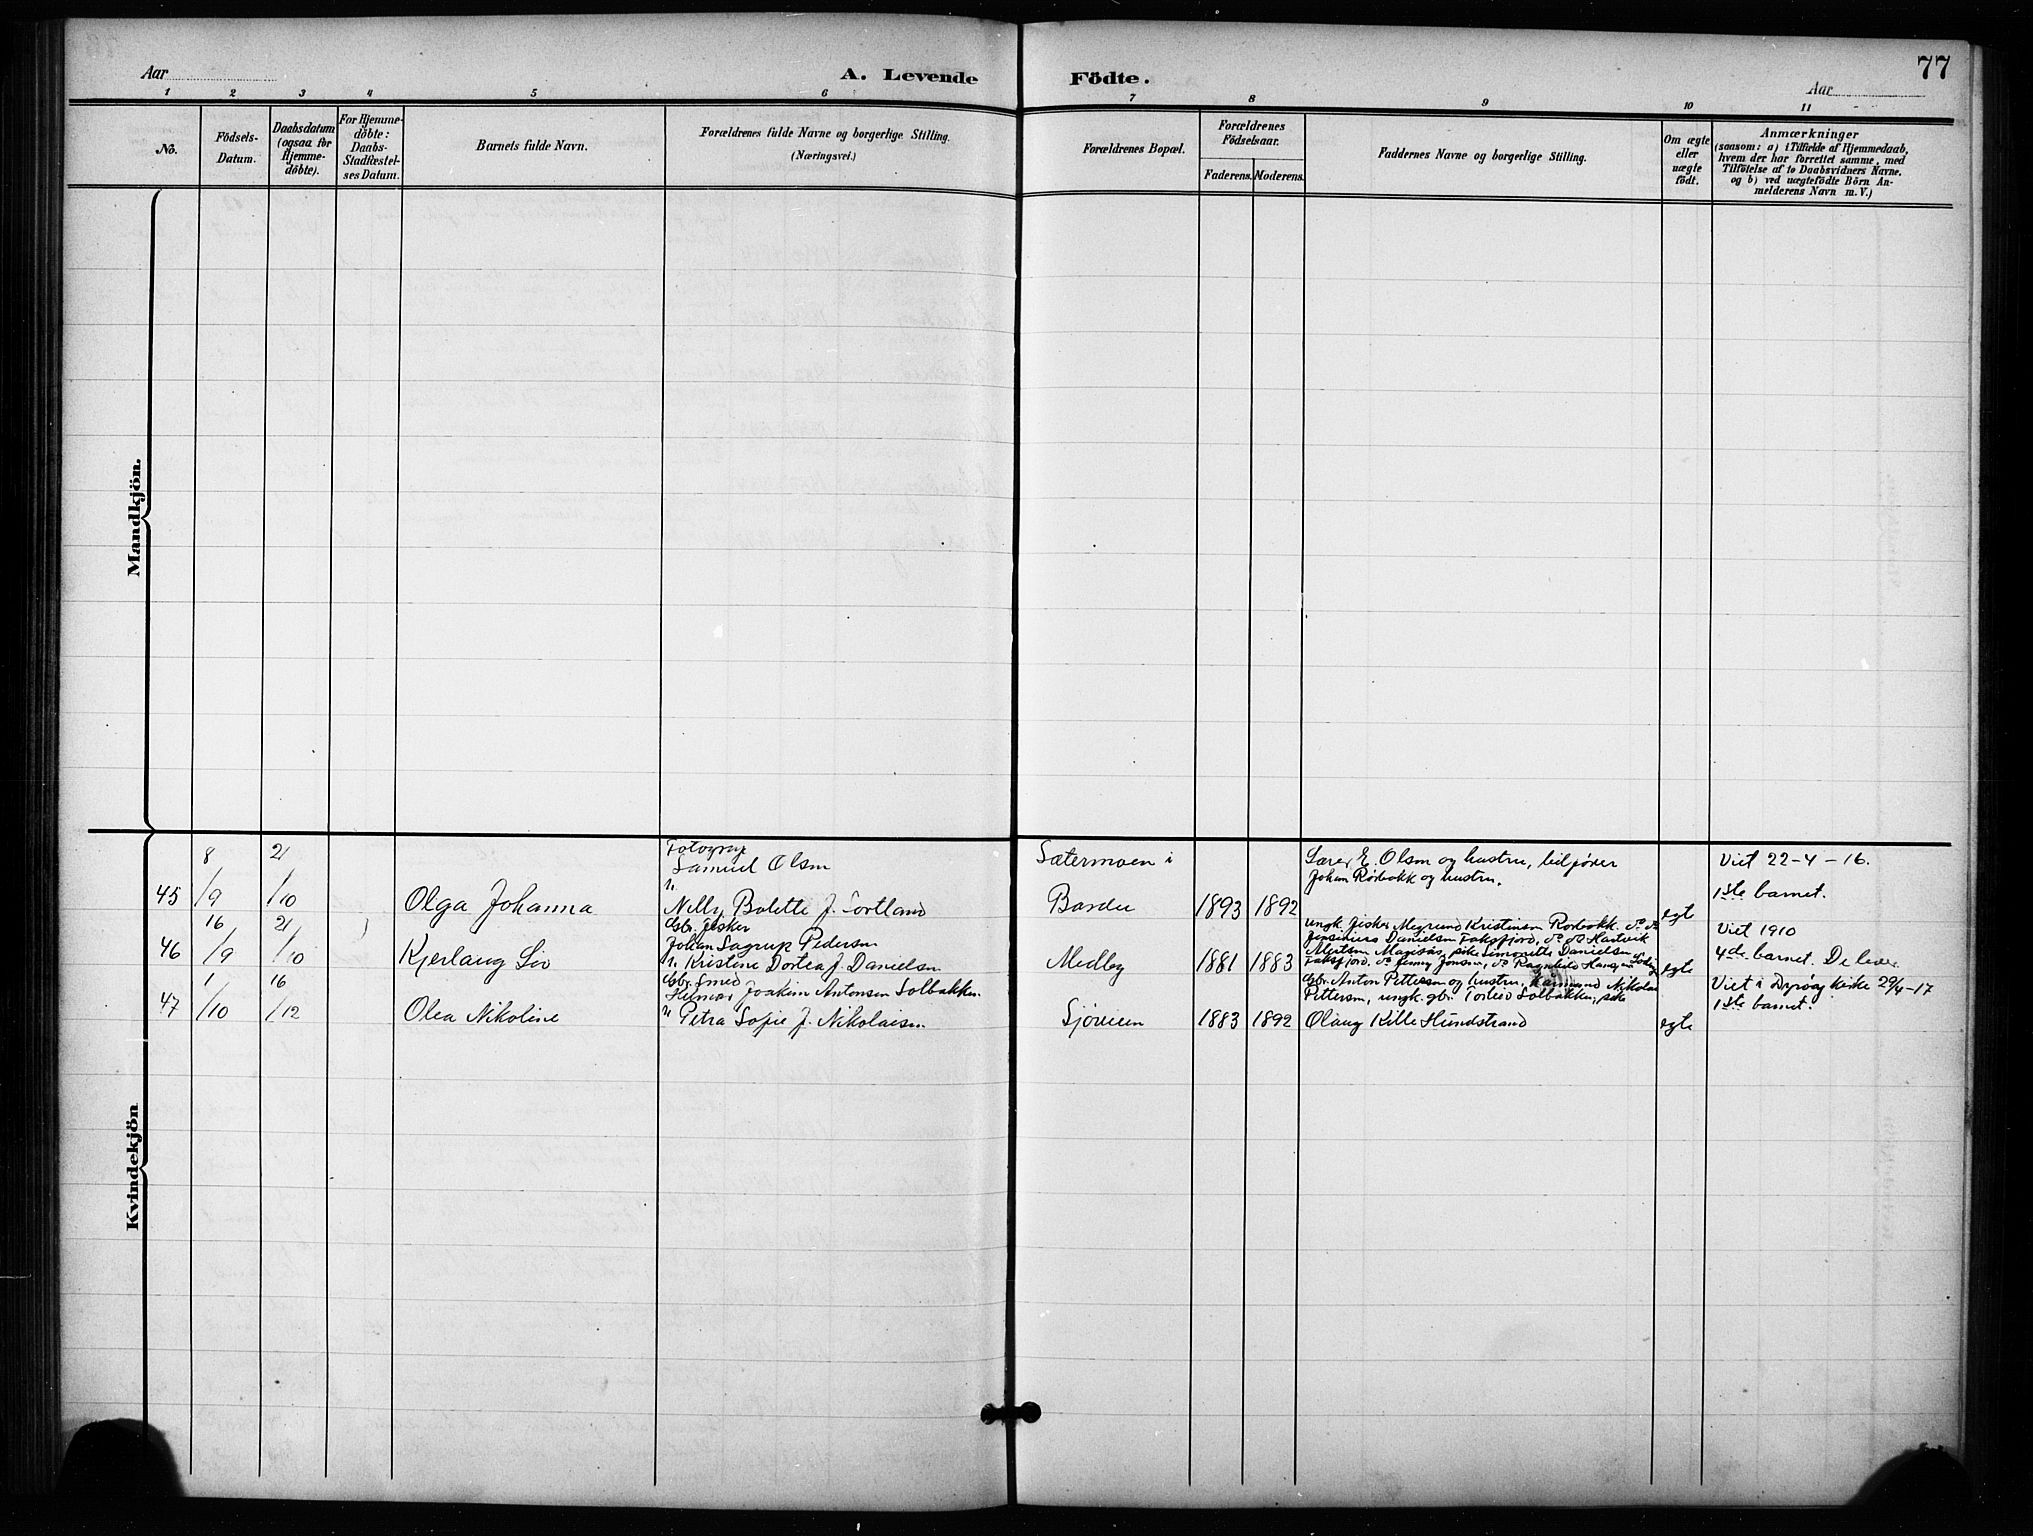 77
Aar
A. Levende
Födte.
Aar
1 2 3 4 5 6 7 8 9 10 11
No.
Födsels-
Datum.
Daabsdatum
(ogsaa for
Hjemme-
döbte).
For Hjemme-
döbte:
Daabs-
Stadfæstel-
ses Datum.
Barnets fulde Navn.
Forældrenes fulde Navne og borgerlige Stilling.
(Næringsvei.)
Forældrenes Bopæl.
Forældrenes
Födselsaar.
Faderens. Moderens.
Faddernes Navne og borgerlige Stilling.
Om ægte
eller
uægte
födt.
Anmærkninger
(saasom: a) i Tilfælde af Hjemmedaab,
hvem der har forrettet samme, med
Tilföielse af to Daabsvidners Navne,
og b) ved uægtefödte Börn An-
melderens Navn m.V.)
Mandkjön.
Kvindekjön
45
8/9
21/10
Olga Johanna
Fotograf
Samuel Olsen
Nelly Bolette f. Sortland
Sætermoen i
Bardu
1893 1892
Lærer E. Olsen og hustru,
Johan Rörbakk og hustru.
egte
Viet 22-4-16.
1ste barnet.
46
16/9
21/10
Kjerlaug Liv
Gbr. fisker
Johan Sagrup Pedersen
h. Kristine Dortea f. Danielsen
Medby
1881 1883
ungk. fisker Kristensen Rörbakk. do do
Danielsen Faksfjord, do do Hartvik
pike Simonette Danielsen
Faksfjord, do Jenny Jensen, do Ragnhild Hansen
egte
Viet 1910
4de barnet. De lever
47
1/10
16/12
Olea Nikoline
Gbr. Smed
Helmer Joakim Antonsen Solbakken.
h. Petra Sofie f. Nikolaisen.
Sjöveien
1883 1892
Gbr. Anton Pettersen og hustru, Nikolai
Pettersen, ungk. gbr. Torleiv Solbakken, pike
Olaug Kille Hundstrand
egte
Viet i Dyröy kirke 29/4-17
1ste barnet.